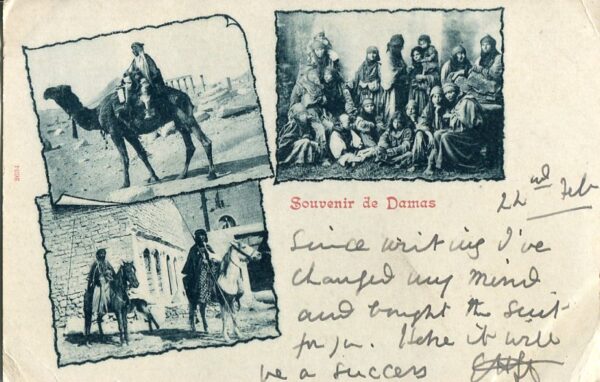 Souvenir de Damas
22nd Feb
Since writing I've
changed my mind
and bought the suit
for you. Hope it will
be a success